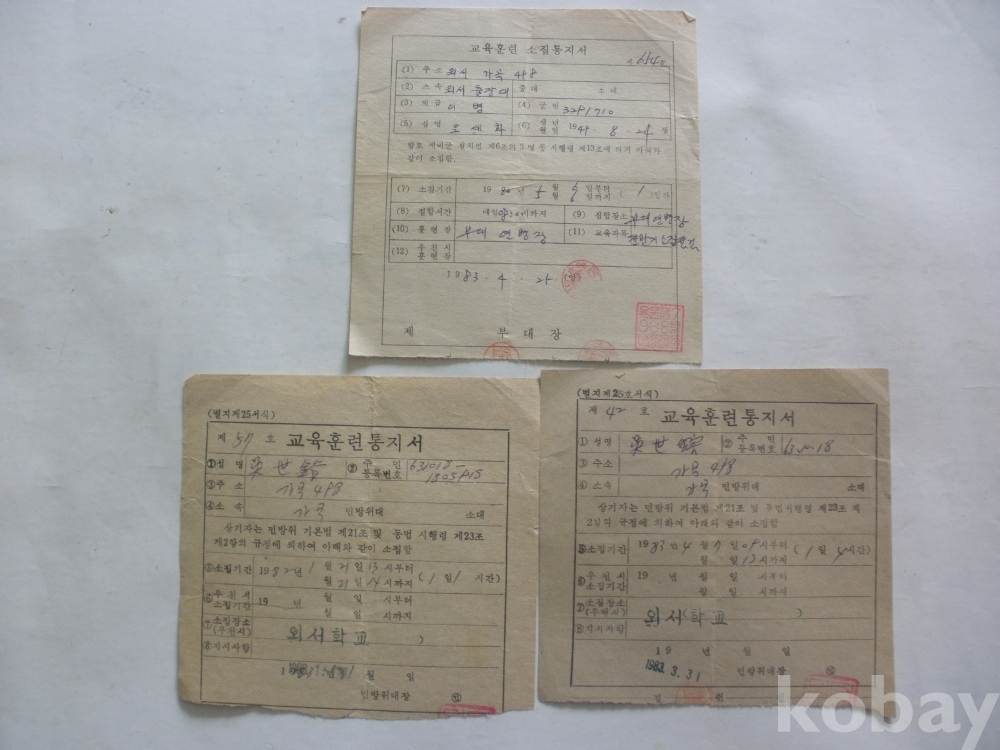 교육훈련 소집통지서
(1) 주소 외서 가곡 498
(2) 소속 외서 중대 소대
(3) 계급 이병 (4) 군번
(5) 성명 오세화 (6) 생년월일 1949. 8. 24
같이 소집함.
(7) 소집기간 19 년 5 월 일부터 ( 1 )일간
월 일까지
(8) 집합시간 까지 (9) 집합장소 부대 연병장
(10) 훈련장 부대 연병장 (11) 교육과목
(12) 우천시 훈련장
1983. 4. 25. (인)
제 부대장
(별지제25서식)
제 57 호 교육훈련통지서
①성명 吳世 ② 주민등록번호 631018-
③주소 가곡 498
④소속 가곡 민방위대 소대
상기자는 민방위 기본법 제21조 및 동법 시행령 제23조
제2항의 규정에 의하여 아래와 같이 소집함
⑤소집기간 1982년 1월 21일 13시부터 (1일 시간)
월 21일 14시까지
⑥우천시 소집기간 19 년 월 일 시부터
월 일 시까지
⑦소집장소 (우천시) 외서학교 )
⑧지시사항
월 일
민방위대장 ㊞
(별지제25호서식)
제 42 호 교육훈련통지서
①성명 吳世 ② 주민등록번호
③주소 가곡 498
④소속 가곡 민방위대 소대
상기자는 민방위 기본법 제21조 및 동법시행령 제23조 제
2항의 규정에 의하여 아래와 같이 소집함
⑤소집기간 1983년 4월 7일 09시부터 (1일 4시간)
월 일 13시까지
⑥우천시 소집기간 19 년 월 일 시부터
월 일 시까지
⑦소집장소 (우천시) 외서학교 )
⑧지시사항
19 년 월 일
1983. 3. 31 민방위대장 ㊞
kobay